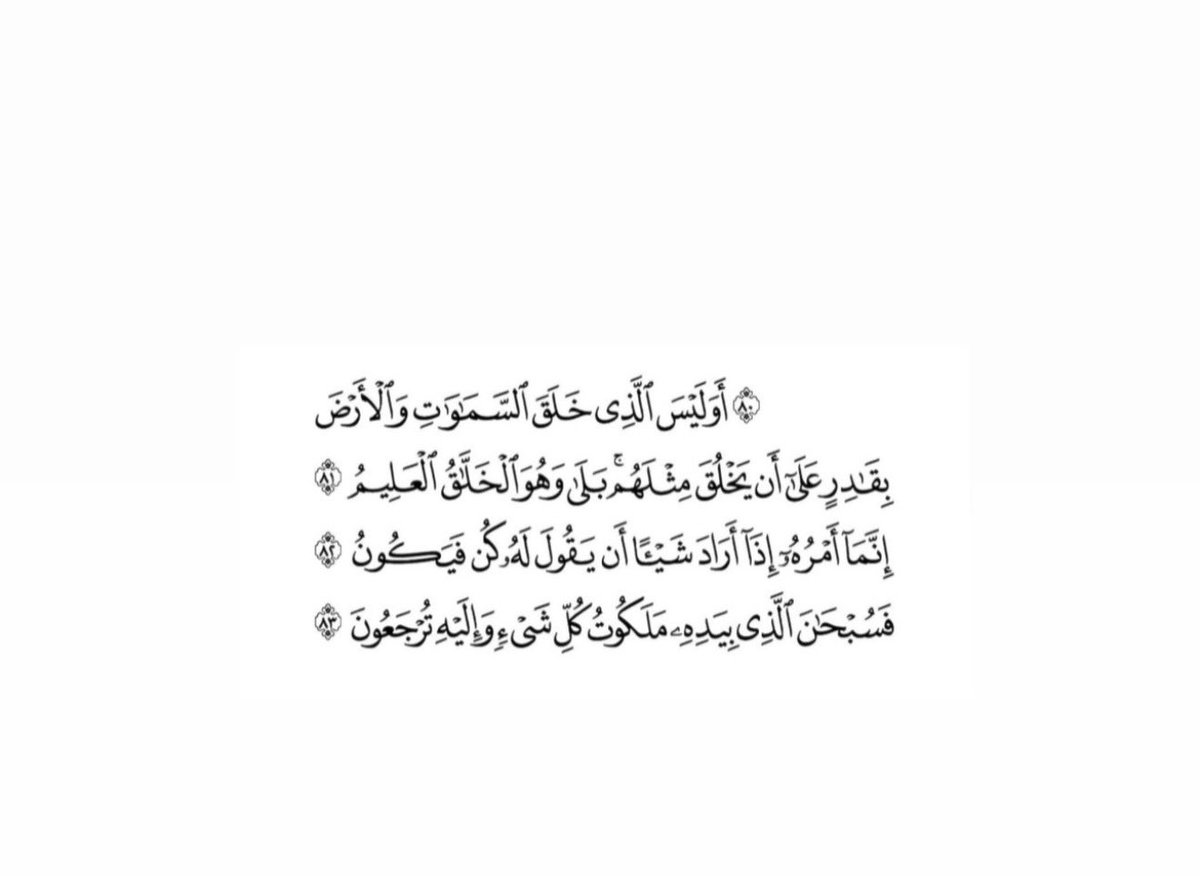 ۝٨٠ أَوَلَيۡسَ ٱلَّذِى خَلَقَ ٱلسَّمَٰوَٰتِ وَٱلۡأَرۡضَ
بِقَٰدِرٍ عَلَىٰٓ أَن يَخۡلُقَ مِثۡلَهُمۚ بَلَىٰ وَهُوَ ٱلۡخَلَّٰقُ ٱلۡعَلِيمُ ۝٨١
إِنَّمَآ أَمۡرُهُۥٓ إِذَآ أَرَادَ شَيۡـًٔا أَن يَقُولَ لَهُۥ كُن فَيَكُونُ ۝٨٢
فَسُبۡحَٰنَ ٱلَّذِى بِيَدِهِۦ مَلَكُوتُ كُلِّ شَىۡءٍ وَإِلَيۡهِ تُرۡجَعُونَ ۝٨٣